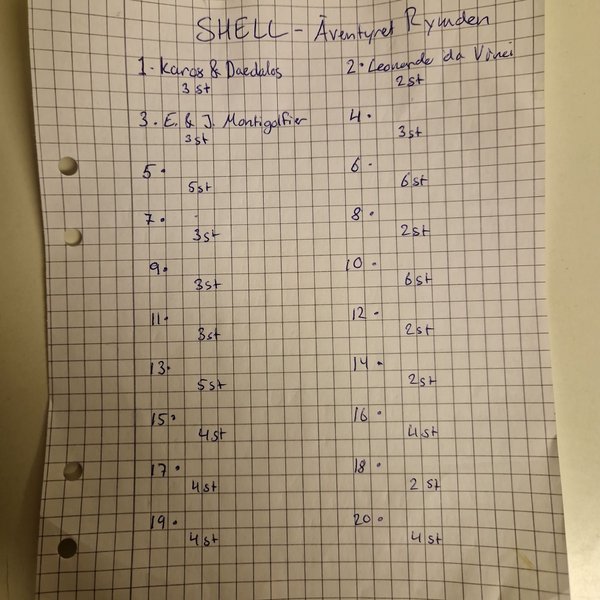 SHELL - Äventyret Rymden
1. Karos & Daedalos
3st
2. Leonardo da Vinci
2st
3. E. & J. Montigolfier
3st
4.
3st
5.
5st
6.
6st
7.
3st
8.
2st
9.
3st
10.
6st
11.
3st
12.
2st
13.
5st
14.
2st
15.
4st
16.
4st
17.
4st
18.
2 st
19.
4st
20.
4st